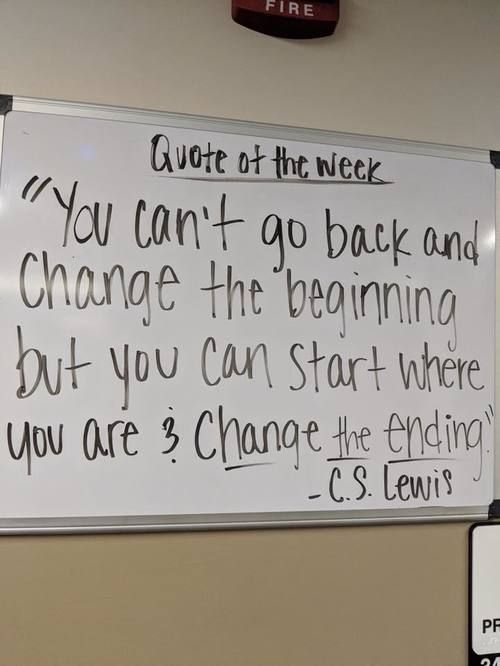 FIRE
Quote of the week
"You can't go back and
change the beginning
but you can start where
you are & change the ending"
- C.S. Lewis
PR